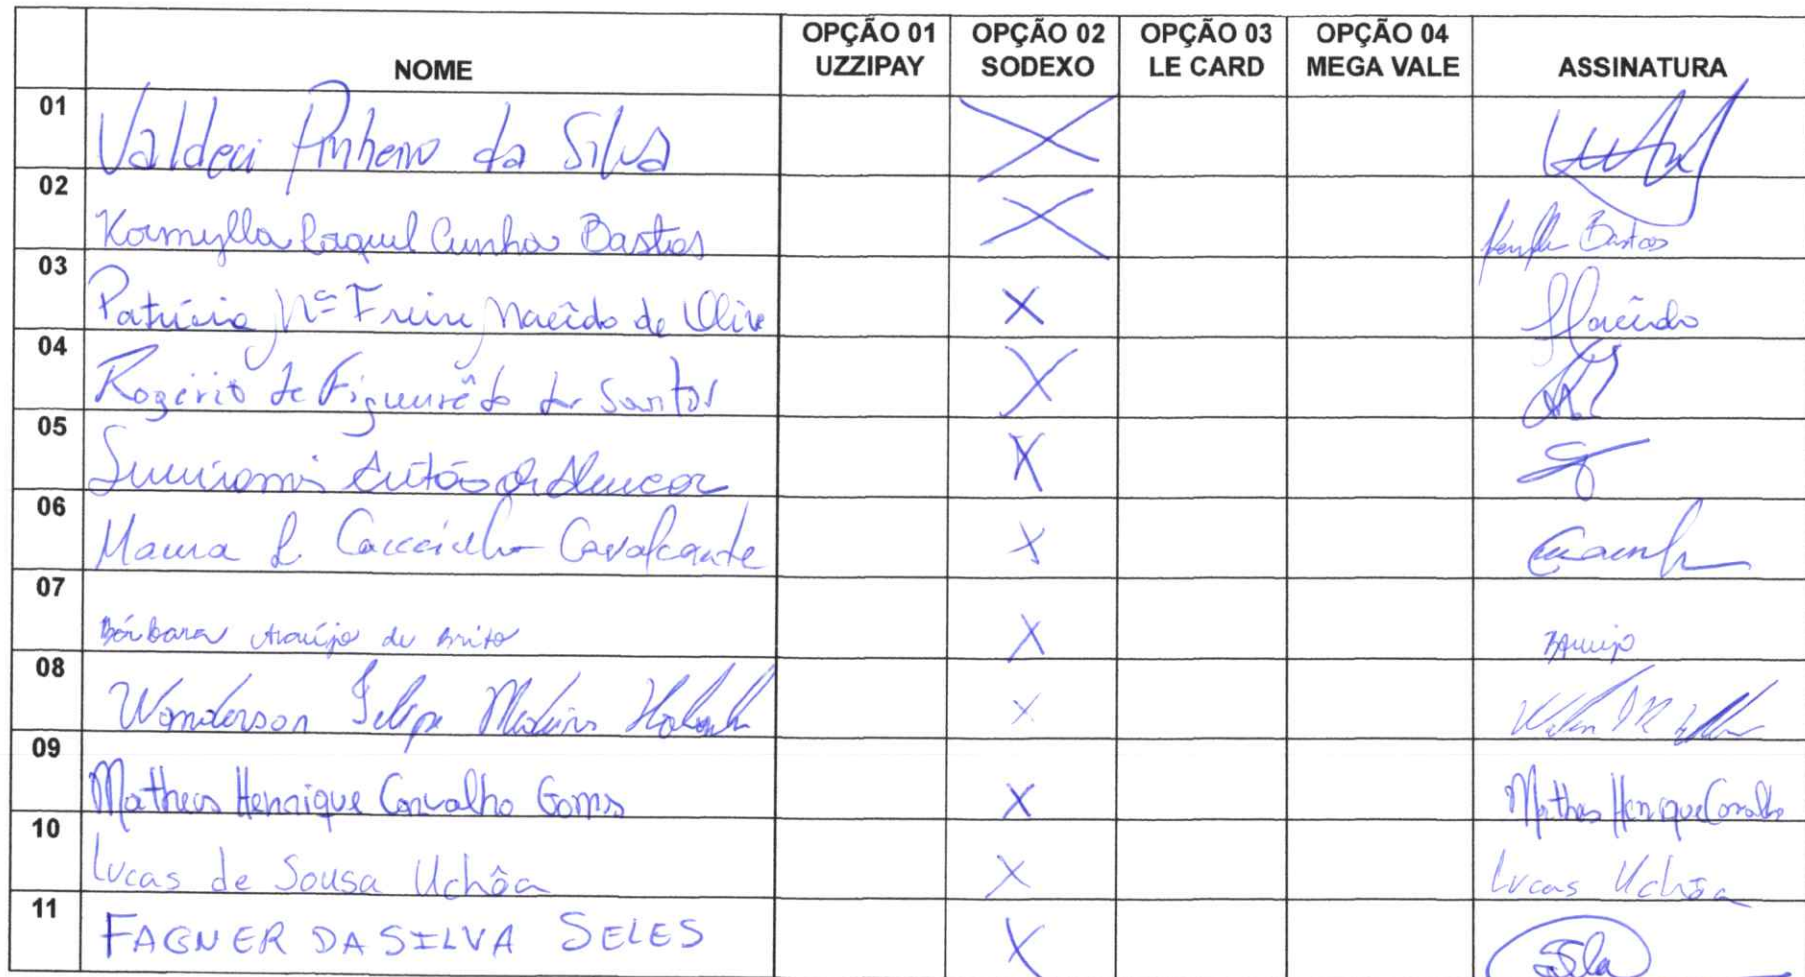 NOME OPÇÃO 01 UZZIPAY OPÇÃO 02 SODEXO OPÇÃO 03 LE CARD OPÇÃO 04 MEGA VALE ASSINATURA
01 Valdeci Pinheiro da Silva X
02 Kamylla Raquel Cunha Bastos X Bastos
03 Patrícia Mª Freire Macêdo de Olive X Macêdo
04 Rogério de Figueirêdo dos Santos X
05 de Alencar X
06 Maura Cavalcante X
07 Bárbara Araújo de Brito X Araújo
08 Wanderson Felipe X
09 Matheus Henrique Carvalho Goms X Matheus Henrique Carvalho
10 Lucas de Sousa Uchôa X Lucas Uchôa
11 FAGNER DA SILVA SELES X